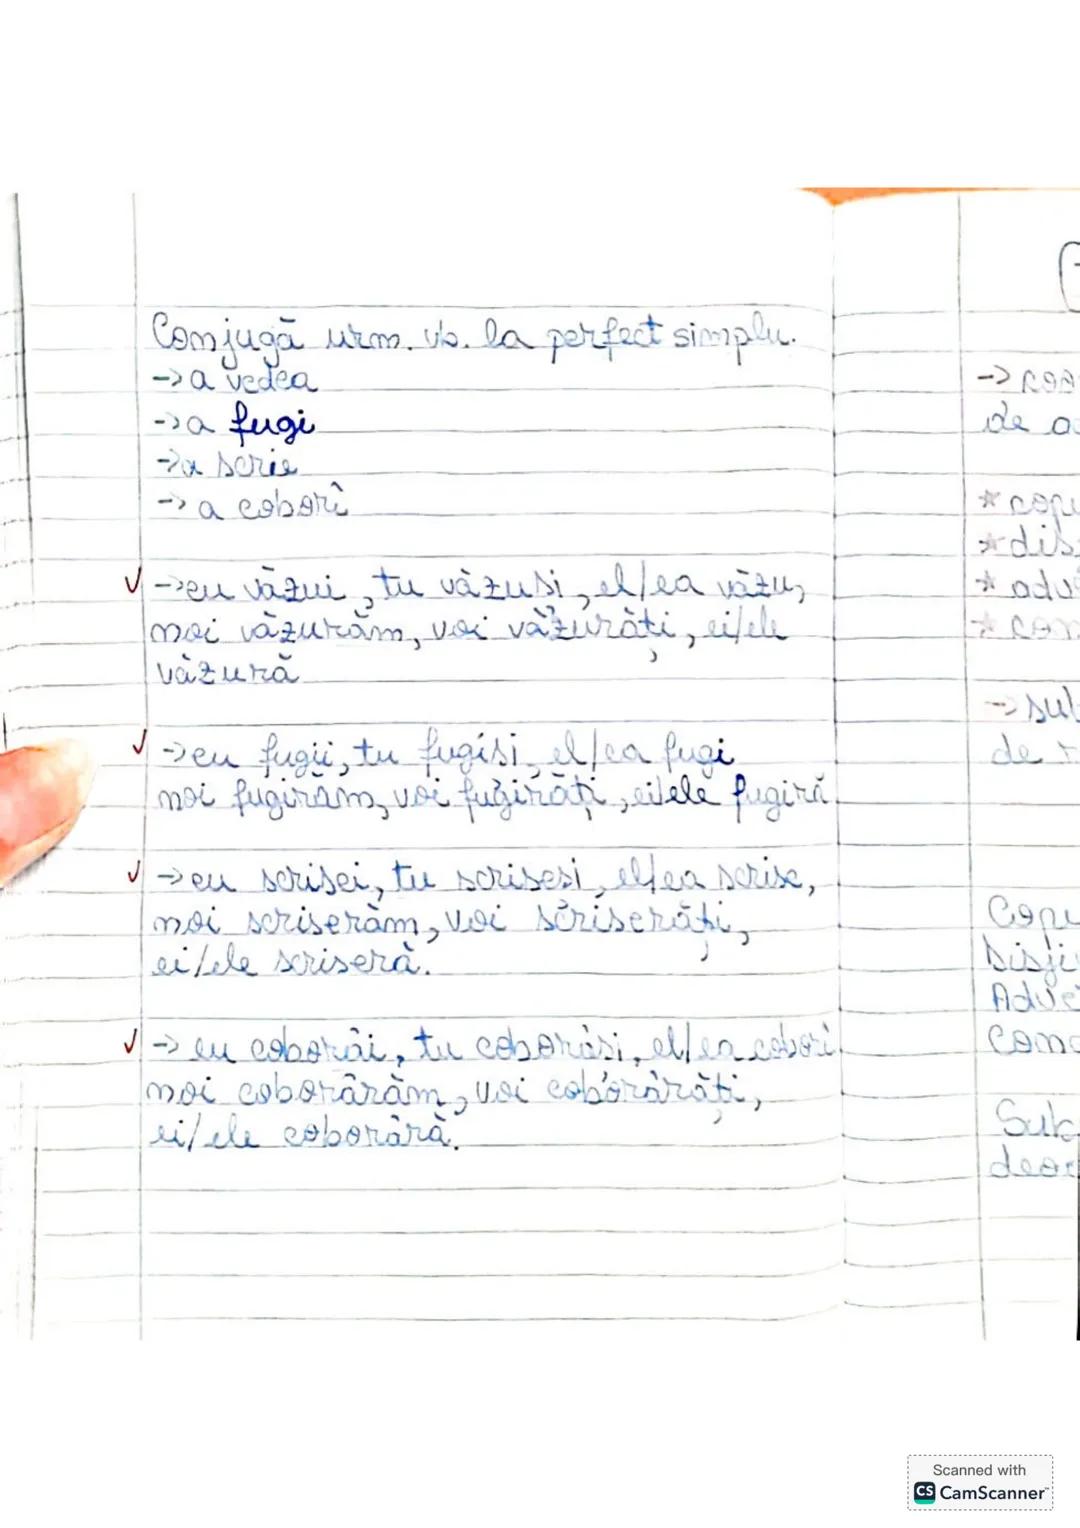 Conjugă urm. vb. la perfect simplu.
-> a vedea
-> a fugi
-> a scrie
-> a coborî
✓ -> eu văzui, tu văzuși, el/ea văzu,
noi văzurăm, voi văzurăți, ei/ele
văzură
✓ -> eu fugii, tu fugiși, el/ea fugi
noi fugirăm, voi fugirăți, ei/ele fugiră
✓ -> eu scrisei, tu scriseși, el/ea scrise,
noi scriserăm, voi scriserăți,
ei/ele scriseră.
✓ -> eu coborâi, tu coborâși, el/ea coborî
noi coborârăm, voi coborârăți,
ei/ele coborâră.
de
de
Scanned with
CS CamScanner